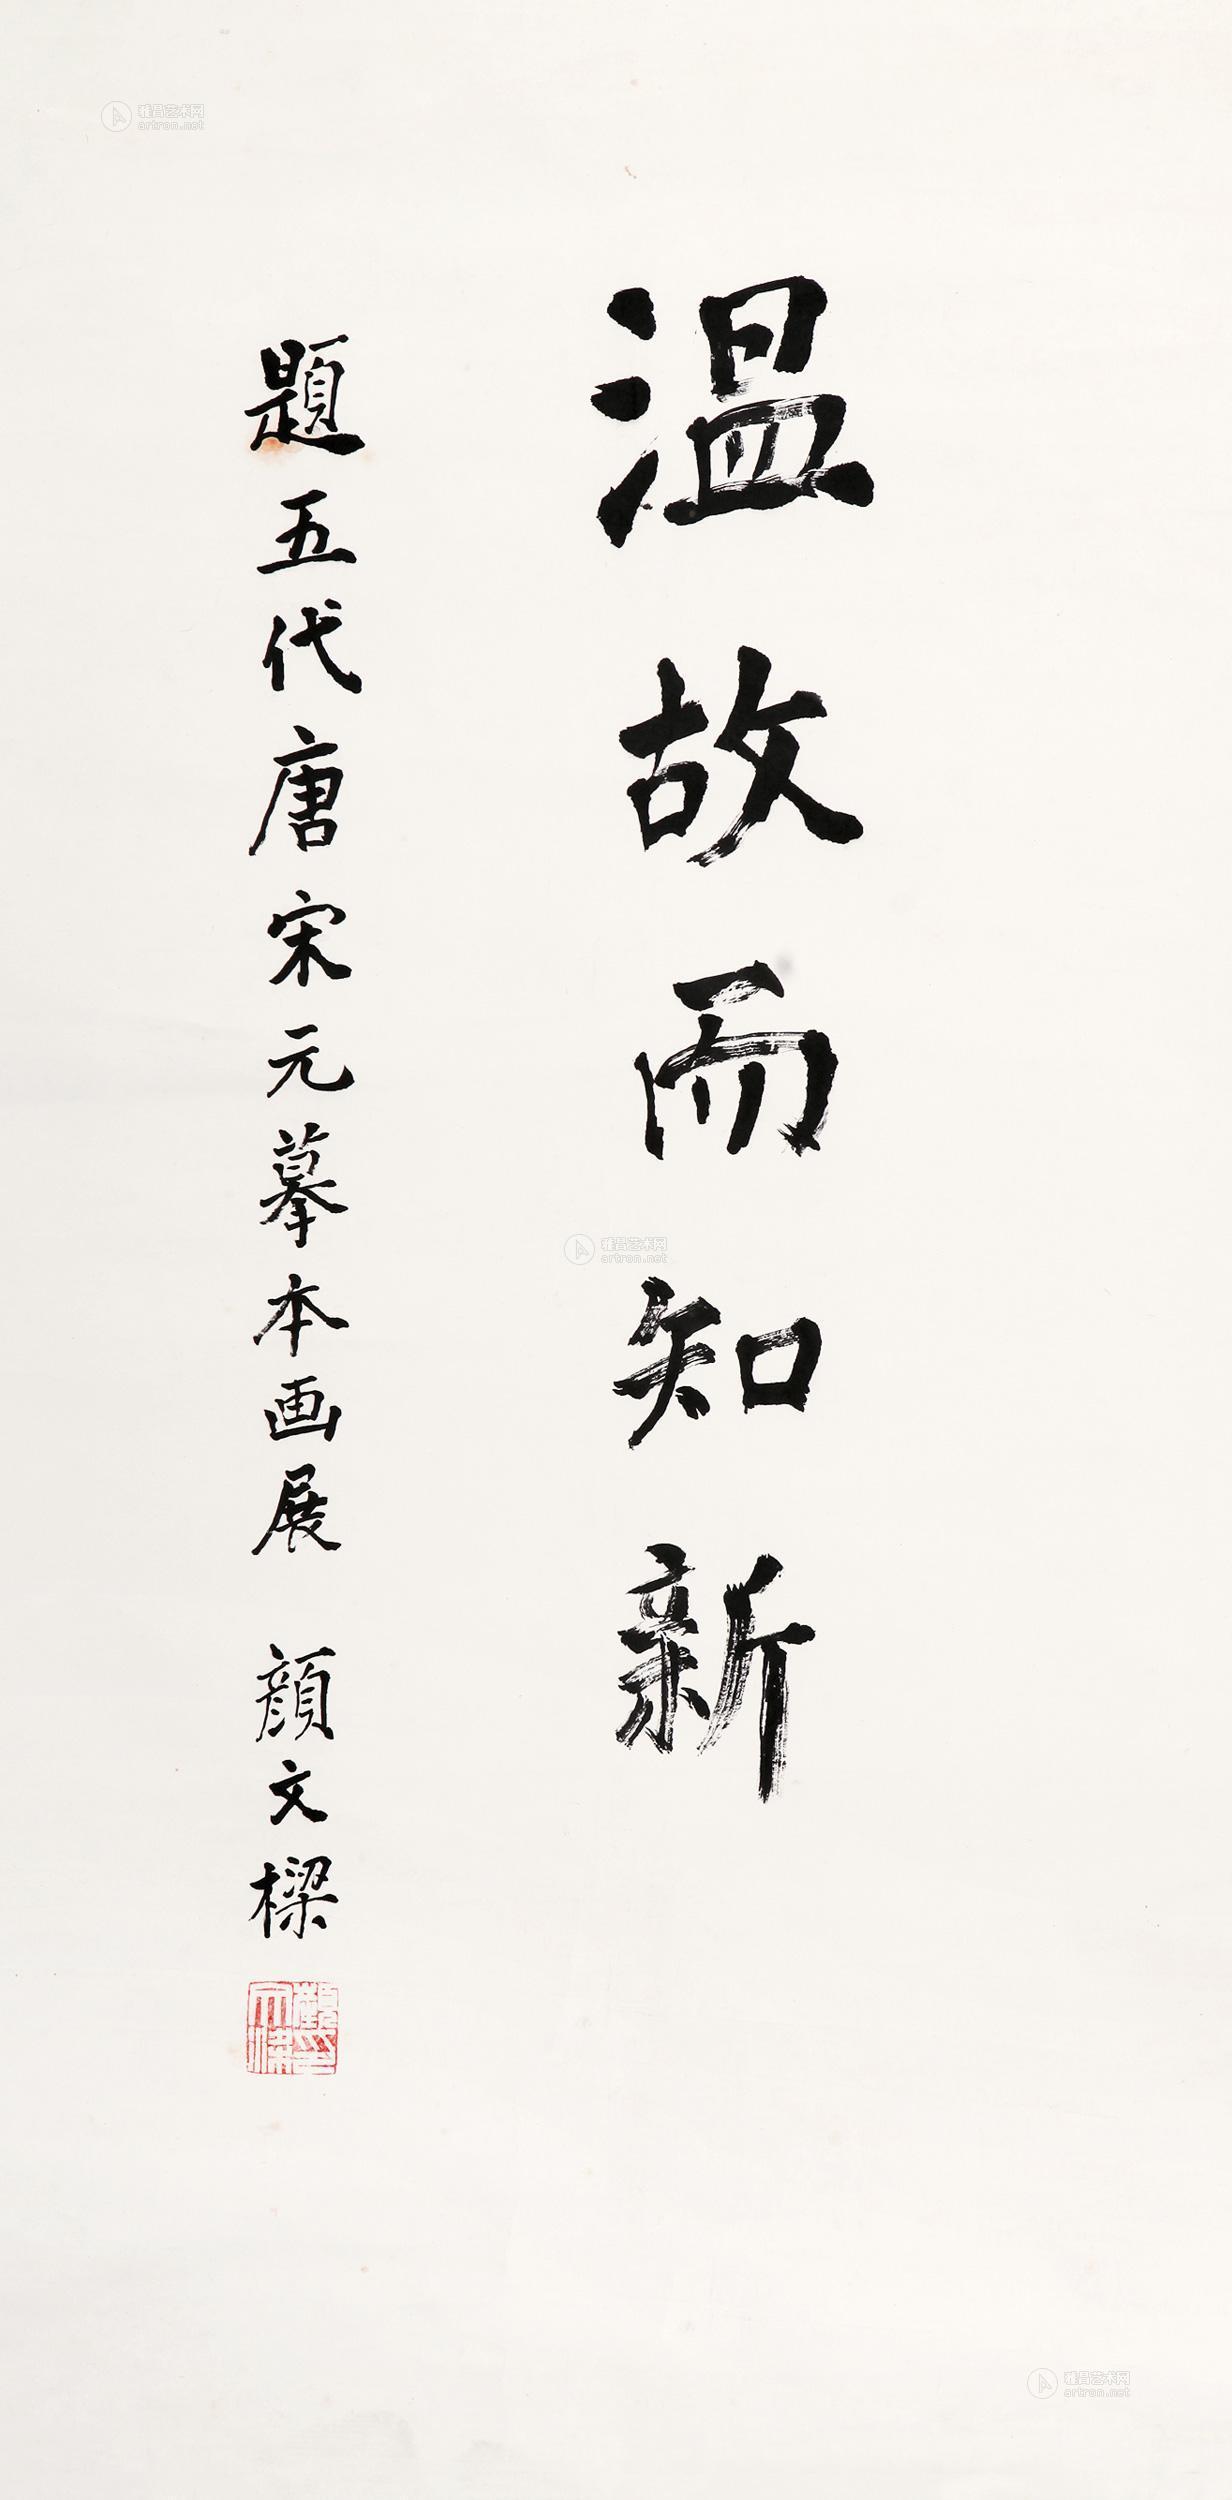 温故而知新
題五代唐宋元摹本画展 顔文樑
雅昌艺术网
artron.net
雅昌艺术网
artron.net
雅昌艺术网
artron.net